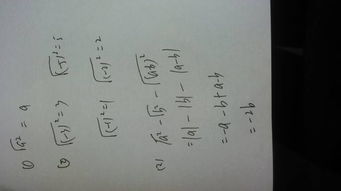 (1) √a² = a
(2) √(-3)² = 3 √(-5)² = 5
√(-1)² = 1 √(-2)² = 2
(2) √a² - √b² - √(a-b)²
= |a| - |b| - |a-b|
= -a - b + a - b
= -2b